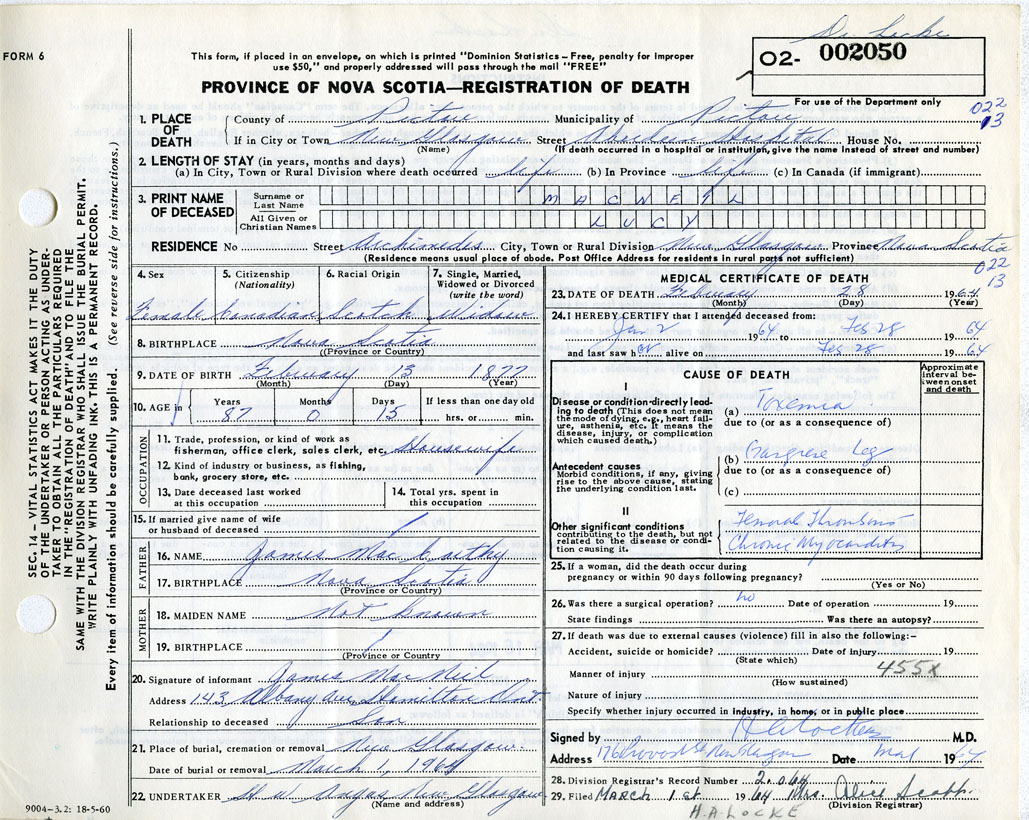 Dr. Locke
FORM 6
This form, if placed in an envelope, on which is printed "Dominion Statistics – Free, penalty for improper
use $50," and properly addressed will pass through the mail "FREE"
O2- 002050
PROVINCE OF NOVA SCOTIA—REGISTRATION OF DEATH
For use of the Department only
022
13
1. PLACE OF DEATH
County of Pictou Municipality of Pictou
If in City or Town New Glasgow Street Aberdeen Hospital House No.
(Name) (If death occurred in a hospital or institution, give the name instead of street and number)
2. LENGTH OF STAY (in years, months and days)
(a) In City, Town or Rural Division where death occurred life (b) In Province life (c) In Canada (if immigrant)
3. PRINT NAME OF DECEASED
Surname or Last Name MACNEIL
All Given or Christian Names LUCY
RESIDENCE No Street Archimedes City, Town or Rural Division New Glasgow Province Nova Scotia
(Residence means usual place of abode. Post Office Address for residents in rural parts not sufficient)
022
13
4. Sex 5. Citizenship (Nationality) 6. Racial Origin 7. Single, Married, Widowed or Divorced (write the word)
Female Canadian Scotch Widow
8. BIRTHPLACE Nova Scotia
(Province or Country)
9. DATE OF BIRTH February 13 1877
(Month) (Day) (Year)
10. AGE in Years Months Days If less than one day old
87 0 15 hrs. or min.
OCCUPATION
11. Trade, profession, or kind of work as
fisherman, office clerk, sales clerk, etc. Housewife
12. Kind of industry or business, as fishing,
bank, grocery store, etc.
13. Date deceased last worked
at this occupation
14. Total yrs. spent in
this occupation
15. If married give name of wife
or husband of deceased
FATHER
16. NAME James MacCarthy
17. BIRTHPLACE Nova Scotia
(Province or Country)
MOTHER
18. MAIDEN NAME Not Known
19. BIRTHPLACE
(Province or Country
20. Signature of informant James MacNeil
Address 143 Albany ave, Hamilton Ont
Relationship to deceased Son
21. Place of burial, cremation or removal New Glasgow
Date of burial or removal March 1, 1964
22. UNDERTAKER H W Angus New Glasgow
(Name and address)
9004-3.2: 18-5-60
SEC. 14 – VITAL STATISTICS ACT MAKES IT THE DUTY
OF THE UNDERTAKER OR PERSON ACTING AS UNDER-
TAKER TO OBTAIN ALL THE PARTICULARS REQUIRED
IN THE "REGISTRATION OF DEATH" AND TO FILE THE
SAME WITH THE DIVISION REGISTRAR WHO SHALL ISSUE THE BURIAL PERMIT.
WRITE PLAINLY WITH UNFADING INK. THIS IS A PERMANENT RECORD.
Every item of information should be carefully supplied. (See reverse side for instructions.)
MEDICAL CERTIFICATE OF DEATH
23. DATE OF DEATH February 28 1964
(Month) (Day) (Year)
24. I HEREBY CERTIFY that I attended deceased from:
Jan 2 1964 to Feb 28 1964
and last saw her alive on Feb 28 1964
CAUSE OF DEATH
Approximate interval be-tween onset and death
I
Disease or condition directly lead-
ing to death (This does not mean
the mode of dying, e.g., heart fail-
ure, asthenia, etc. It means the
disease, injury, or complication
which caused death.)
(a) Toxemia
due to (or as a consequence of)
Antecedent causes
Morbid conditions, if any, giving
rise to the above cause, stating
the underlying condition last.
(b) Gangrene Leg
due to (or as a consequence of)
(c)
II
Other significant conditions
contributing to the death, but not
related to the disease or condi-
tion causing it.
Femoral Thrombosis
Chronic Myocarditis
25. If a woman, did the death occur during
pregnancy or within 90 days following pregnancy?
(Yes or No)
26. Was there a surgical operation? no Date of operation 19
State findings Was there an autopsy?
27. If death was due to external causes (violence) fill in also the following:–
Accident, suicide or homicide? Date of injury 19
(State which)
Manner of injury 455X
(How sustained)
Nature of injury
Specify whether injury occurred in industry, in home, or in public place
Signed by H A Locke M.D.
Address New Glasgow Date Mar 1 1964
28. Division Registrar's Record Number 2.064
29. Filed MARCH 1st 1964 Mrs. Alice Scott
(Division Registrar)
H.A. LOCKE